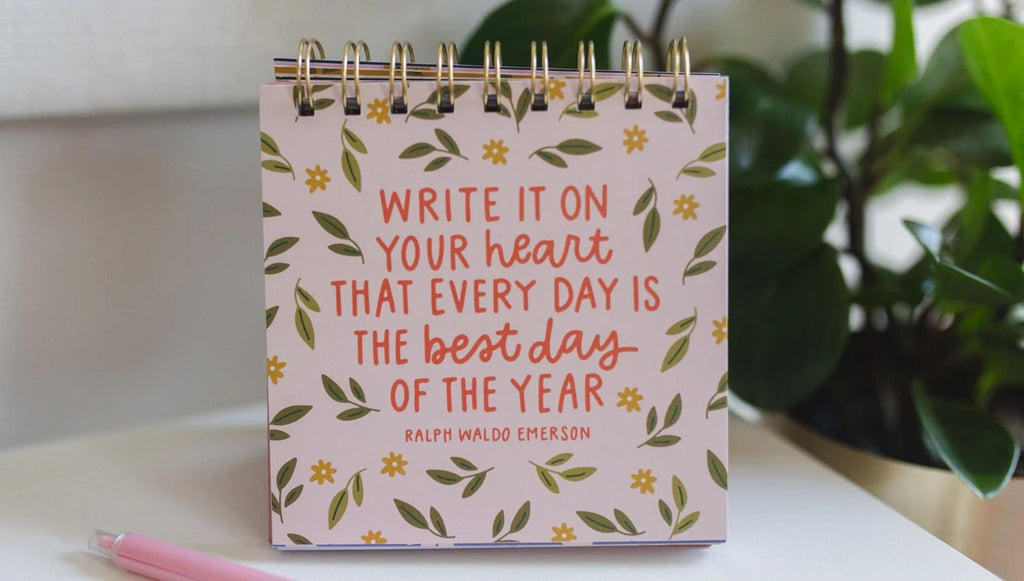 WRITE IT ON
YOUR heart
THAT EVERY DAY IS
THE best day
OF THE YEAR
RALPH WALDO EMERSON